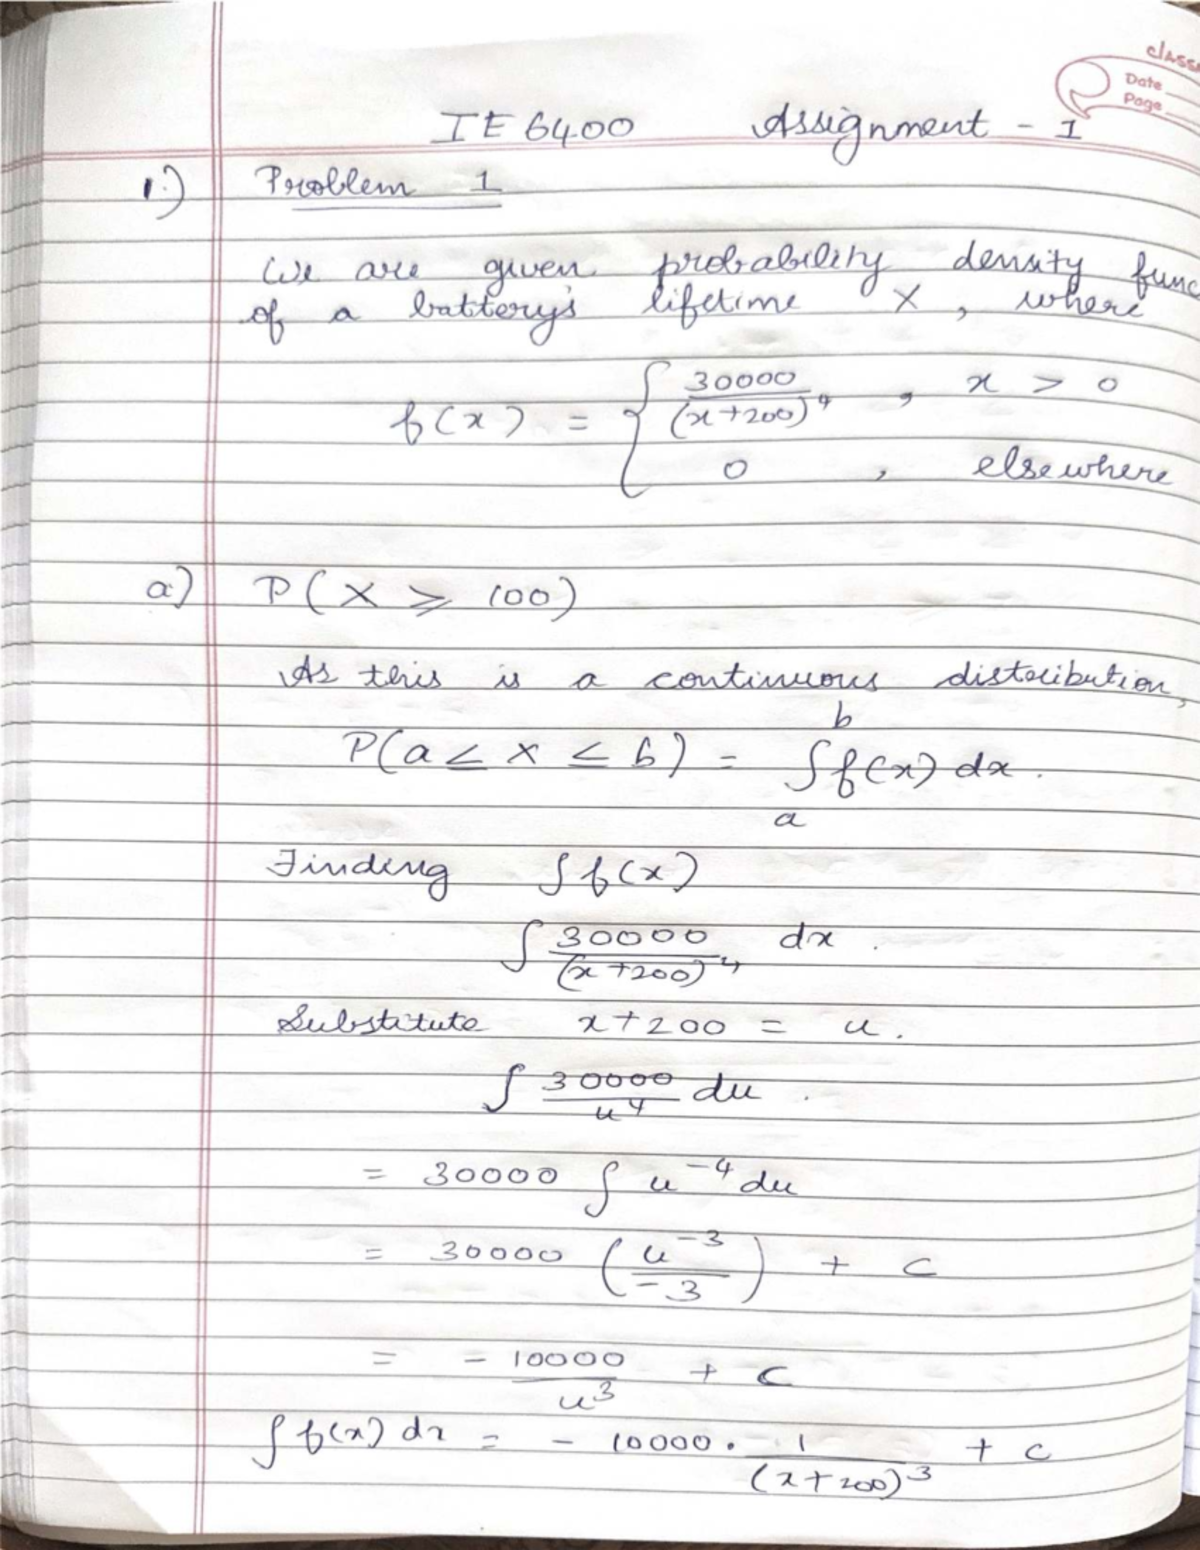 classm
Date
Page
IE 6400 Assignment - 1
1.) Problem 1
We are given probability density func
of a battery's lifetime X, where
f(x) = { 30000/(x+200)^4 , x > 0
0 , elsewhere
a) P(X ≥ 100)
As this is a continuous distribution,
P(a ≤ x ≤ b) = ∫_a^b f(x) dx.
Finding ∫f(x)
∫ 30000/(x+200)^4 dx.
Substitute x+200 = u.
∫ 30000/u^4 du.
= 30000 ∫ u^-4 du
= 30000 (u^-3/-3) + c
= -10000/u^3 + c
∫f(x) dx = - 10000 · 1/(x+200)^3 + c